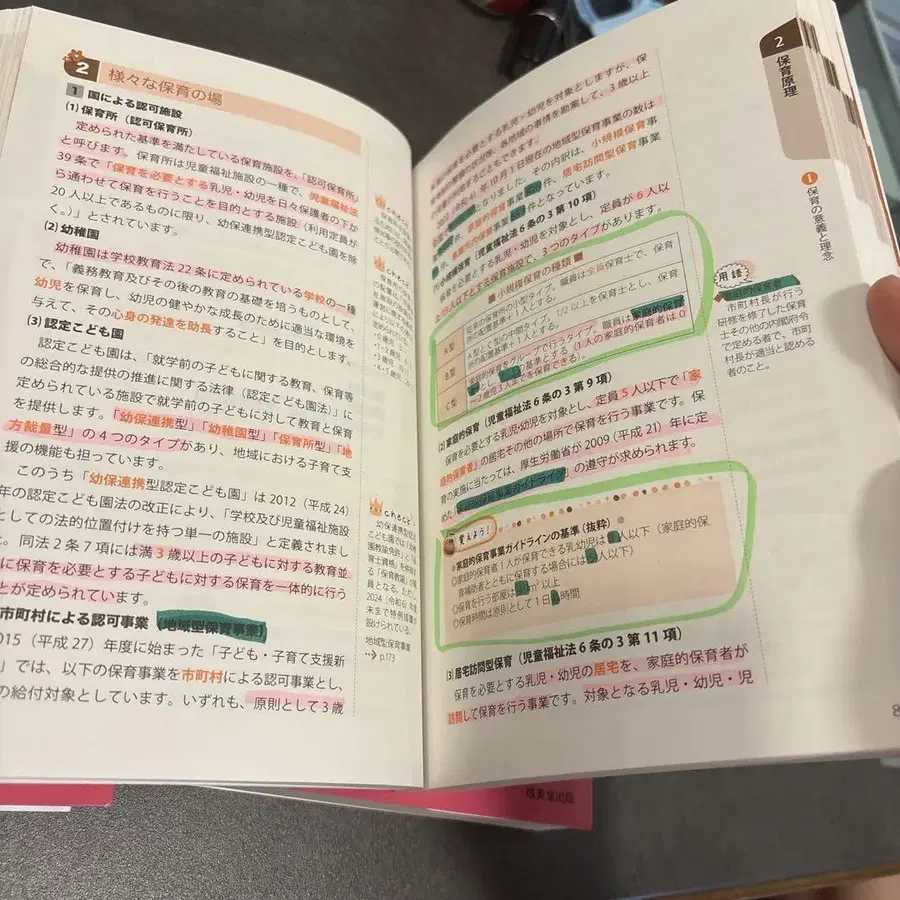 2 様々な保育の場
1 国による認可施設
(1) 保育所（認可保育所）
定められた基準を満たしている保育施設を、「認可保育所」
と呼びます。保育所は児童福祉施設の一種で、児童福祉法
39条で「保育を必要とする乳児・幼児を日々保護者の下か
ら通わせて保育を行うことを目的とする施設（利用定員が
20人以上であるものに限り、幼保連携型認定こども園を除
く。）」とされています。
(2) 幼稚園
幼稚園は学校教育法22条に定められている学校の一種
で、「義務教育及びその後の教育の基礎を培うものとして、
幼児を保育し、幼児の健やかな成長のために適当な環境を
与えて、その心身の発達を助長すること」を目的とします。
(3) 認定こども園
認定こども園は、「就学前の子どもに関する教育、保育等
の総合的な提供の推進に関する法律（認定こども園法）」に
定められている施設で就学前の子どもに対して教育と保育
を提供します。「幼保連携型」「幼稚園型」「保育所型」「地
方裁量型」の4つのタイプがあり、地域における子育て支
援の機能も担っています。
このうち「幼保連携型認定こども園」は2012（平成24）
年の認定こども園法の改正により、「学校及び児童福祉施設
としての法的位置付けを持つ単一の施設」と定義されまし
同法2条7項には満3歳以上の子どもに対する教育並
に保育を必要とする子どもに対する保育を一体的に行う
とが定められています。
市町村による認可事業（地域型保育事業）
015（平成27）年度に始まった「子ども・子育て支援新
」では、以下の保育事業を市町村による認可事業とし、
の給付対象としています。いずれも、原則として3歳
check!
幼保連携型認定こ
地域型保育事業
p.173
を必要とする乳児・幼児を対象としますが、保
各地域の事情を勘案して、3歳以上
10月1日現在の地域型保育事業の数は
となりました。その内訳は、小規模保育事
家庭的保育事業
居宅訪問型保育事
件となっています。
小規模保育（児童福祉法6条の3第10項）
保育を必要とする乳児・幼児を対象とし、定員が6人以
人以下とする保育施設で、3つのタイプがあります。
■小規模保育の種類■
A型 保育所の小型タイプ。職員は全員保育士で、保育
所の配置基準＋1人とする。
B型 A型とC型の中間タイプ。1/2以上を保育士とし、保育
所の配置基準＋1人とする。
C型 家庭的保育をグループで行うタイプ。職員は家庭的保育
の基準とする（1人の家庭的保育者は0
〜2歳児3人までを保育できる）。
(2) 家庭的保育（児童福祉法6条の3第9項）
保育を必要とする乳児・幼児を対象とし、定員5人以下で「家
庭的保育者」の居宅その他の場所で保育を行う事業です。保
育の実施に当たっては、厚生労働省が2009（平成21）年に定
めた「家庭的保育事業ガイドライン」の遵守が求められます。
覚えよう！
●家庭的保育事業ガイドラインの基準（抜粋）●
○家庭的保育者1人が保育できる乳幼児は 人以下（家庭的保
育補助者とともに保育する場合には 人以下）
○保育を行う部屋は ㎡以上
○保育時間は原則として1日 時間
(3) 居宅訪問型保育（児童福祉法6条の3第11項）
保育を必要とする乳児・幼児の居宅を、家庭的保育者が
訪問して保育を行う事業です。対象となる乳児・幼児・児
2 保育原理
1 保育の意義と理念
用語
家庭的保育者
市町村長が行う
研修を修了した保育
士その他の内閣府令
で定める者で、市町
村長が適当と認める
者のこと。
8
成美堂出版